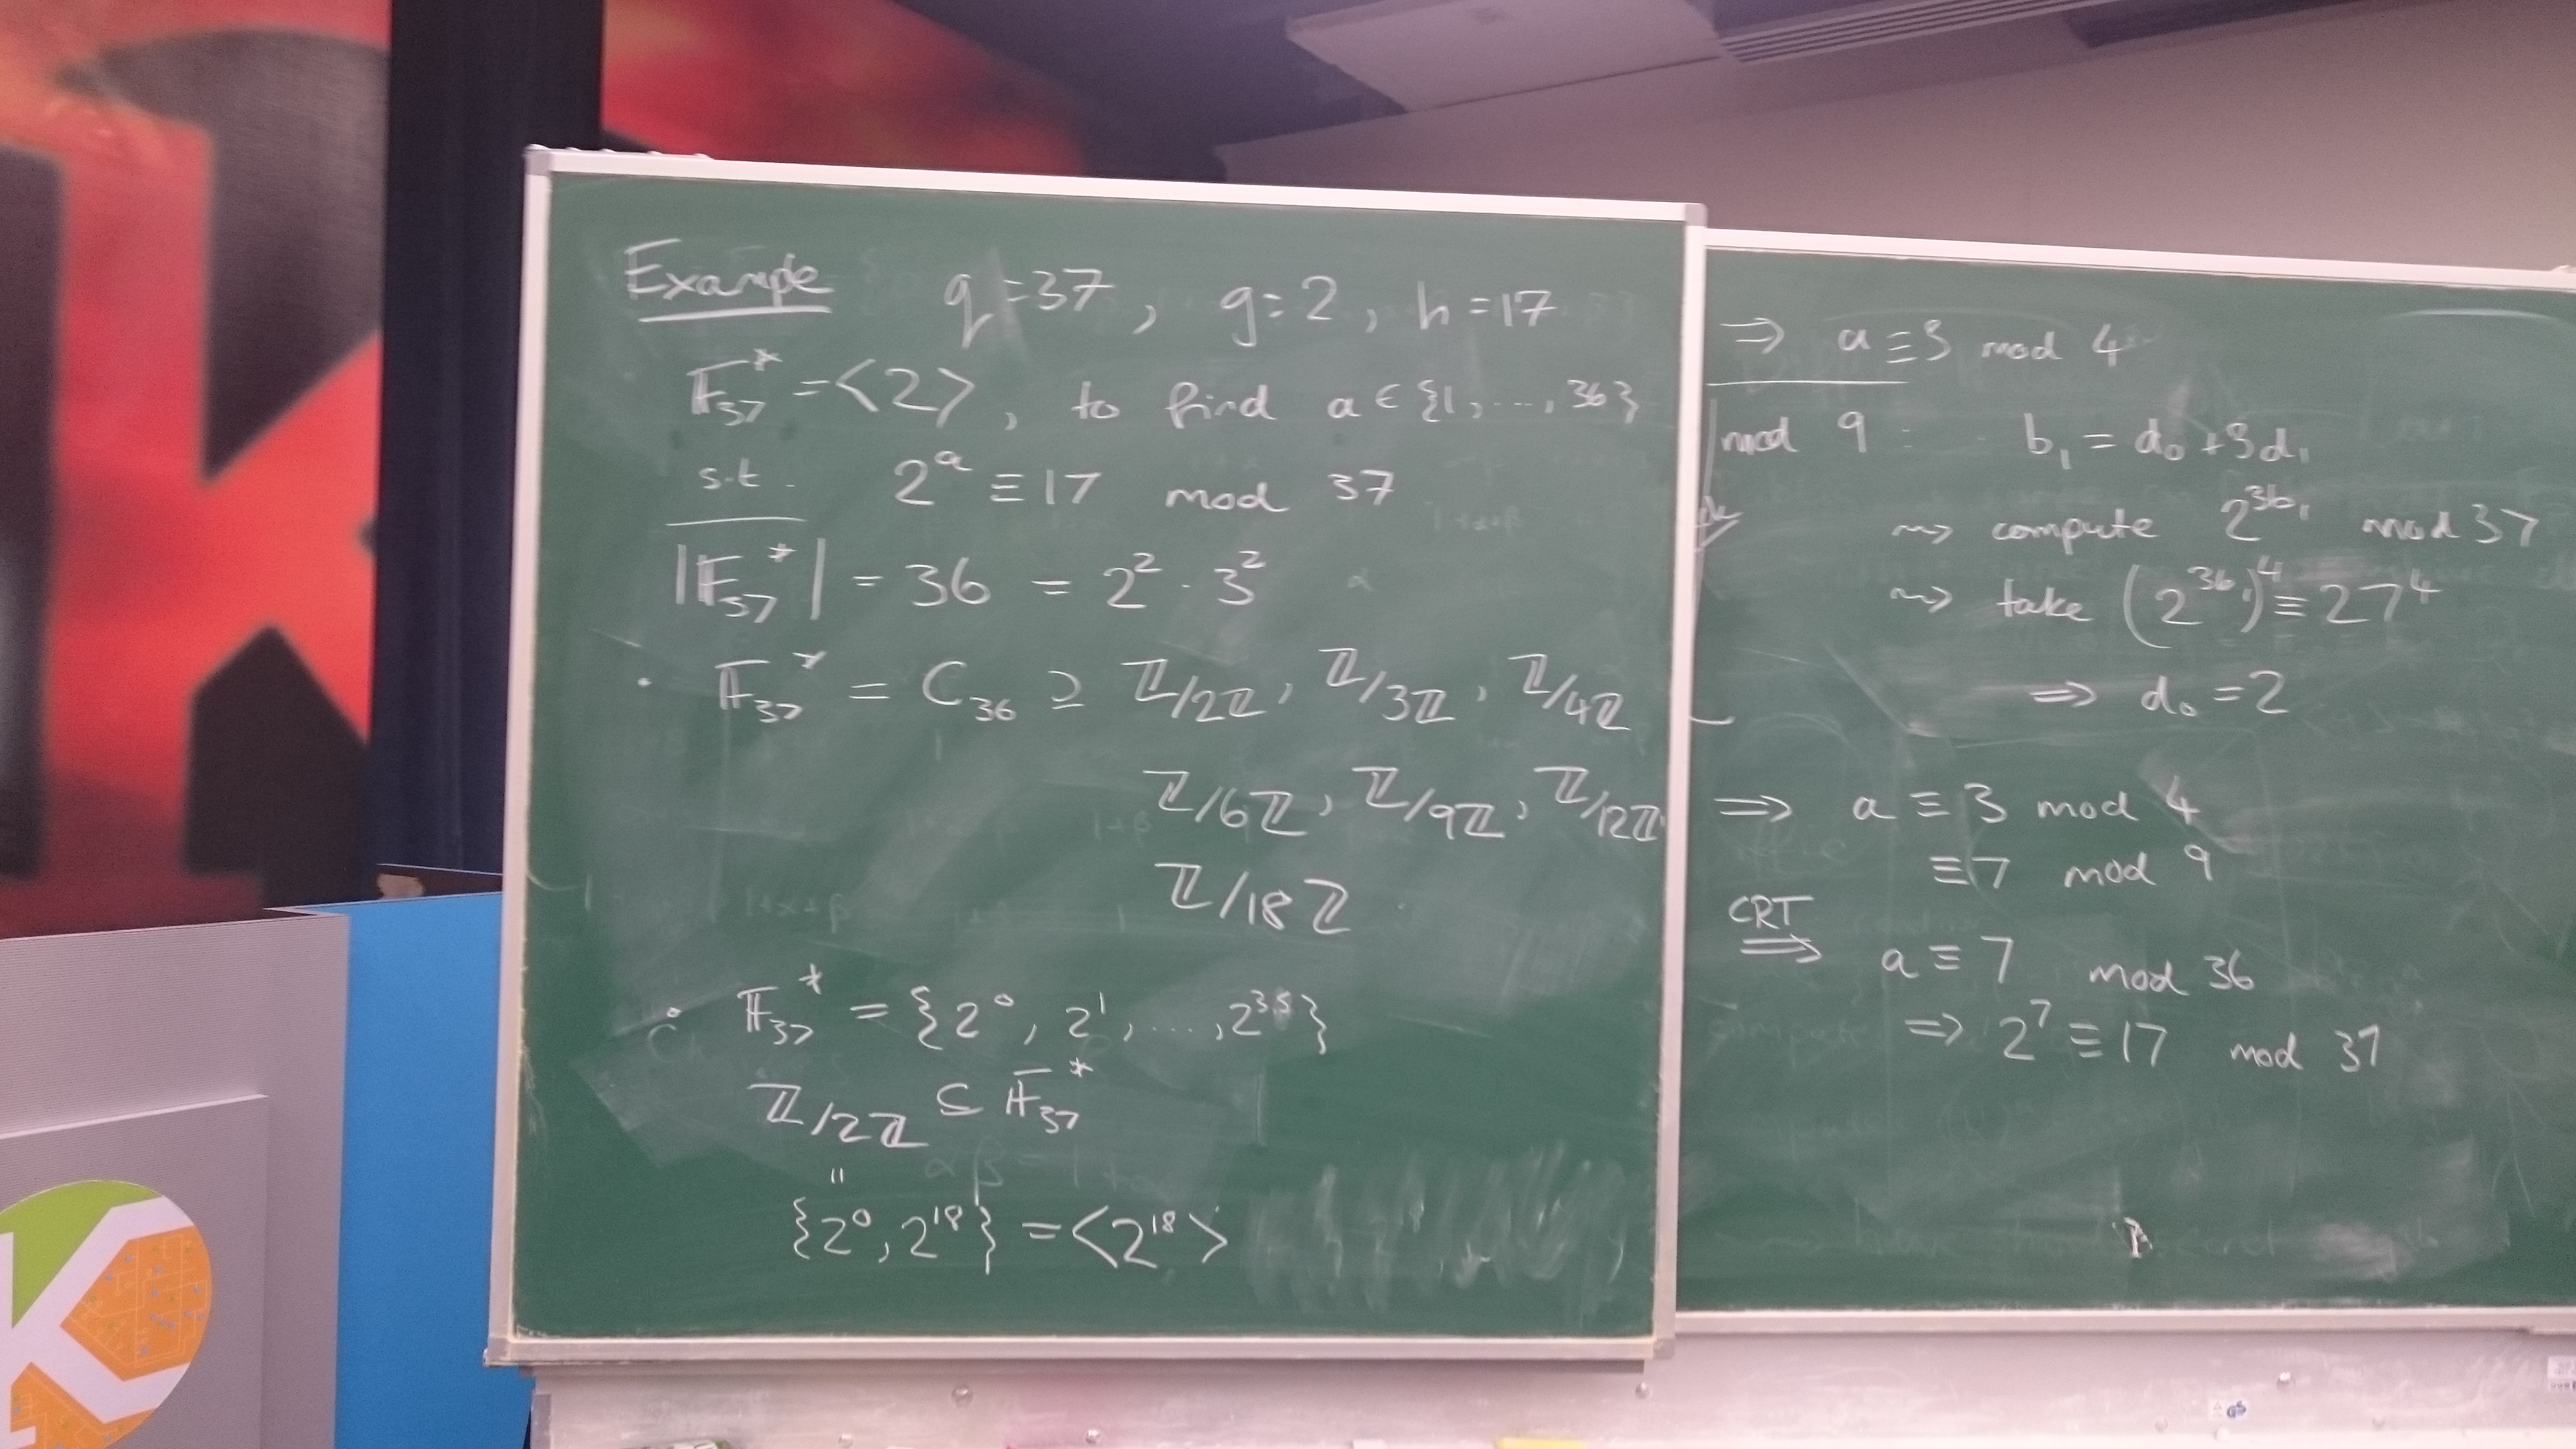 Example q=37, g=2, h=17
F₃₇* = <2>, to find a ∈ {1, ..., 36}
s.t. 2ᵃ ≡ 17 mod 37
|F₃₇*| = 36 = 2² · 3²
· F₃₇* = C₃₆ ⊇ ℤ/2ℤ, ℤ/3ℤ, ℤ/4ℤ
ℤ/6ℤ, ℤ/9ℤ, ℤ/12ℤ
ℤ/18ℤ
· F₃₇* = {2⁰, 2¹, ..., 2³⁵}
ℤ/2ℤ ⊆ F₃₇*
"
{2⁰, 2¹⁸} = <2¹⁸>
⇒ a ≡ 3 mod 4
mod 9: b₁ = d₀ + 3d₁
⇝ compute 2^{3b₁} mod 37
⇝ take (2^{3b₁})⁴ ≡ 27⁴
⇒ d₀ = 2
⇒ a ≡ 3 mod 4
≡ 7 mod 9
CRT
⇒ a ≡ 7 mod 36
⇒ 2⁷ ≡ 17 mod 37